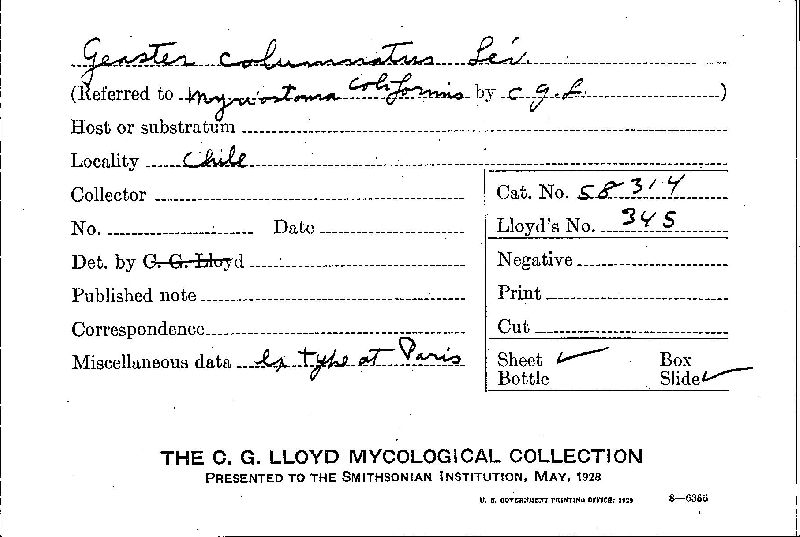 Geaster columnatus Lév.
(Referred to Myriostoma coliformis by C G L)
Host or substratum
Locality Chile
Collector
No. Date
Det. by C. G. Lloyd
Published note
Correspondence
Miscellaneous data Ex type at Paris
Cat. No. 58314
Lloyd's No. 345
Negative
Print
Cut
Sheet ✓ Box
Bottle Slide ✓
THE C. G. LLOYD MYCOLOGICAL COLLECTION
PRESENTED TO THE SMITHSONIAN INSTITUTION, MAY, 1928
U. S. GOVERNMENT PRINTING OFFICE: 1929 8—6366